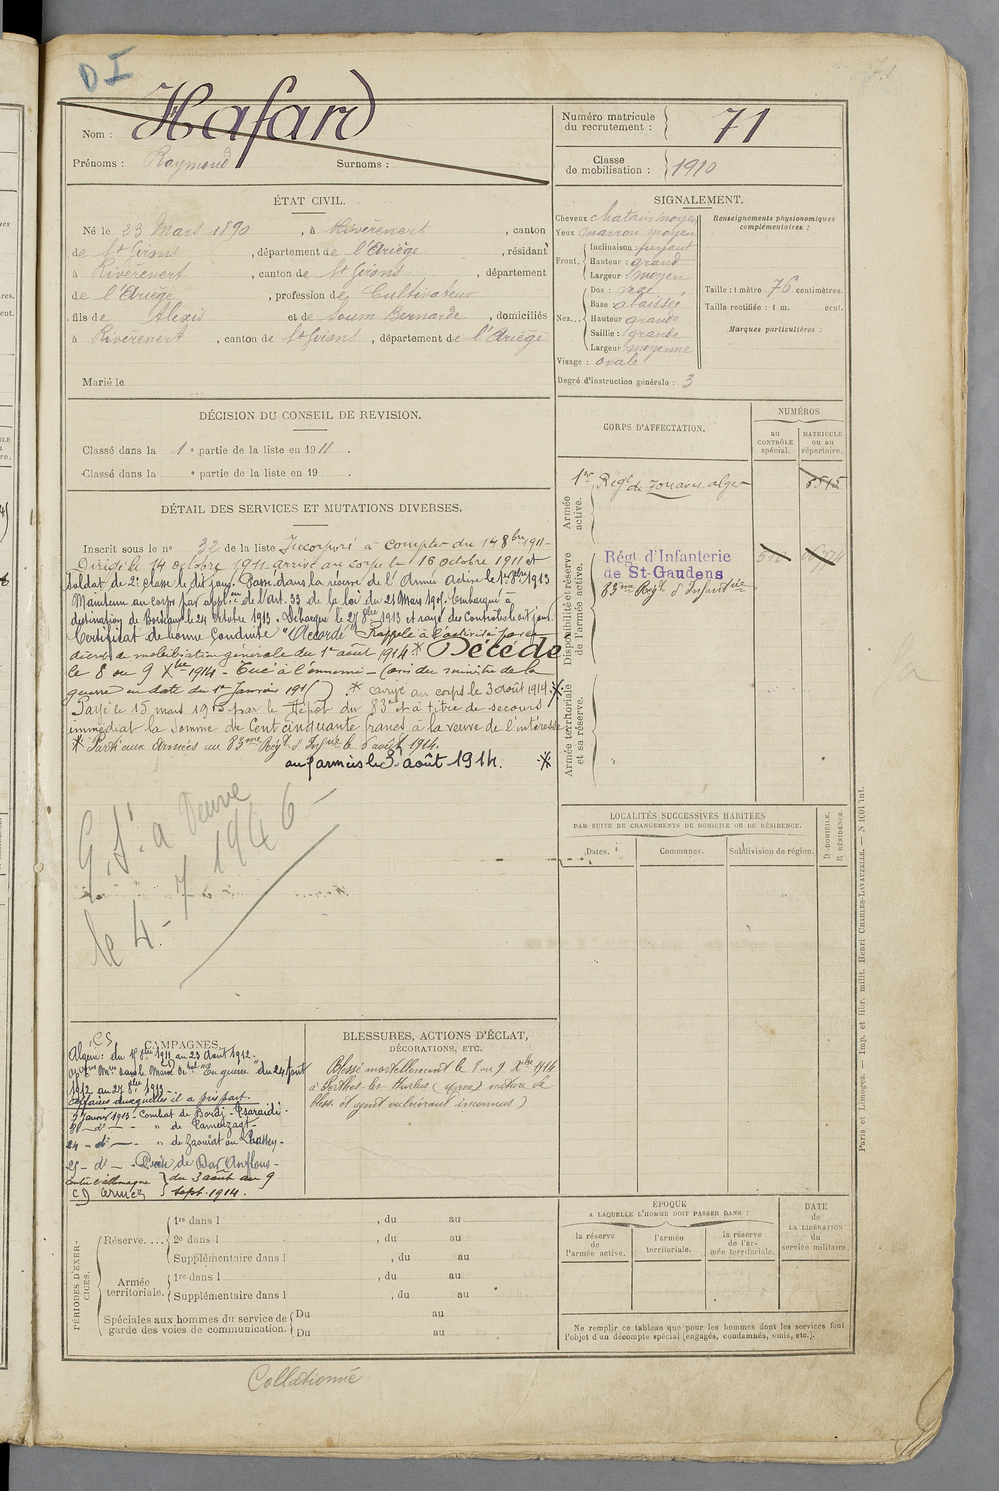 DI
Nom : Hafard
Prénoms : Raymond Surnoms :
Numéro matricule
du recrutement : 71
Classe
de mobilisation : 1910
ÉTAT CIVIL.
Né le 23 Mars 1890, à Rivèrenert, canton
de St Girons, département de l'Ariège, résidant
à Rivèrenert, canton de St Girons, département
de l'Ariège, profession de Cultivateur
fils de Alexis et de Soum Bernarde, domiciliés
à Rivèrenert, canton de St Girons, département de l'Ariège
Marié le
SIGNALEMENT.
Cheveux chatain moyen
Yeux marron moyen
Front. Inclinaison : fuyant
Hauteur : grand
Largeur : moyen
Nez... Dos : vexe
Base : abaissée
Hauteur grande
Saillie : grande
Largeur moyenne
Visage : ovale
Degré d'instruction générale : 3
Renseignements physionomiques
complémentaires :
Taille : 1 mètre 76 centimètres.
Taille rectifiée : 1 m. cent.
Marques particulières :
DÉCISION DU CONSEIL DE REVISION.
Classé dans la 1e partie de la liste en 1911.
Classé dans la e partie de la liste en 19 .
DÉTAIL DES SERVICES ET MUTATIONS DIVERSES.
Inscrit sous le no 32 de la liste Incorporé à compter du 14 8bre 1911-
Dirigé le 14 octobre 1911 arrivé au corps le 16 octobre 1911 et
soldat de 2e classe le dit jour. Passé dans la réserve de l'Armée active le 1er 8bre 1913
Maintenu au corps par applon de l'art. 33 de la loi du 21 Mars 1905. Embarqué à
destination de Bordeaux le 24 Octobre 1913. Débarqué le 27 8bre 1913 et rayé des Contrôles le dit jour.
Certificat de bonne conduite "Accordé" Rappelé à l'activité par
décret de mobilisation générale du 1er août 1914 * Décédé
le 8 ou 9 Xbre 1914 - Tué à l'ennemi - (avis du ministre de la
guerre en date du 1er Janvier 191 ) . * arrivé au corps le 3 août 1914 *
Payé le 15 mars 1915 par le Dépôt du 83e et à titre de secours
immédiat la somme de Cent cinquante francs à la veuve de l'intéressé
* Parti aux Armées au 83ème Régt d'Infrie le 6 août 1914.
aux armées le 3 août 1914. *
G. St. a Veuve
le 4 - 7 1946 -
CORPS D'AFFECTATION.
NUMÉROS
au
CONTRÔLE
spécial.
MATRICULE
ou au
répertoire.
Armée
active.
1er Régt de Zouaves alger
Disponibilité et réserve
de l'armée active.
Régt d'Infanterie
de St-Gaudens
83ème Régt d'Infanterie
Armée territoriale
et sa réserve.
LOCALITÉS SUCCESSIVES HABITÉES
PAR SUITE DE CHANGEMENTS DE DOMICILE OU DE RÉSIDENCE.
Dates.
Communes.
Subdivision de région.
D. DOMICILE.
R. RÉSIDENCE
CAMPAGNES.
CS
Algérie : du 15 8bre 1911 au 23 Août 1912.
"En guerre" du 24 Août
1912 au 27 8bre 1913 -
Affaires auxquelles il a pris part.
Janvier 1913 - Combat de Bordj-
24 - do - " de Zaouiat
25 - do - de Dar Anflous -
Contre l'Allemagne du 3 août au 9
CD Armées Sept. 1914.
BLESSURES, ACTIONS D'ÉCLAT,
DÉCORATIONS, ETC.
Blessé mortellement le 8 ou 9 Xbre 1914
à Perthes les Hurlus (Marne) nature de
bless. et agent vulnérant inconnus)
PÉRIODES D'EXERCICES.
Réserve.... 1re dans l , du au
2e dans l , du au
Supplémentaire dans l , du au
Armée
territoriale. 1re dans l , du au
Supplémentaire dans l , du au
Spéciales aux hommes du service de
garde des voies de communication. Du au
Du au
ÉPOQUE
A LAQUELLE L'HOMME DOIT PASSER DANS :
la réserve
de
l'armée active.
l'armée
territoriale.
la réserve
de l'ar-
mée territoriale.
DATE
de
LA LIBÉRATION
du
service militaire.
Ne remplir ce tableau que pour les hommes dont les services font
l'objet d'un décompte spécial (engagés, condamnés, omis, etc.).
Paris et Limoges. — Imp. et libr. milit. Henri CHARLES-LAVAUZELLE. — N 1601 Int.
Collationné